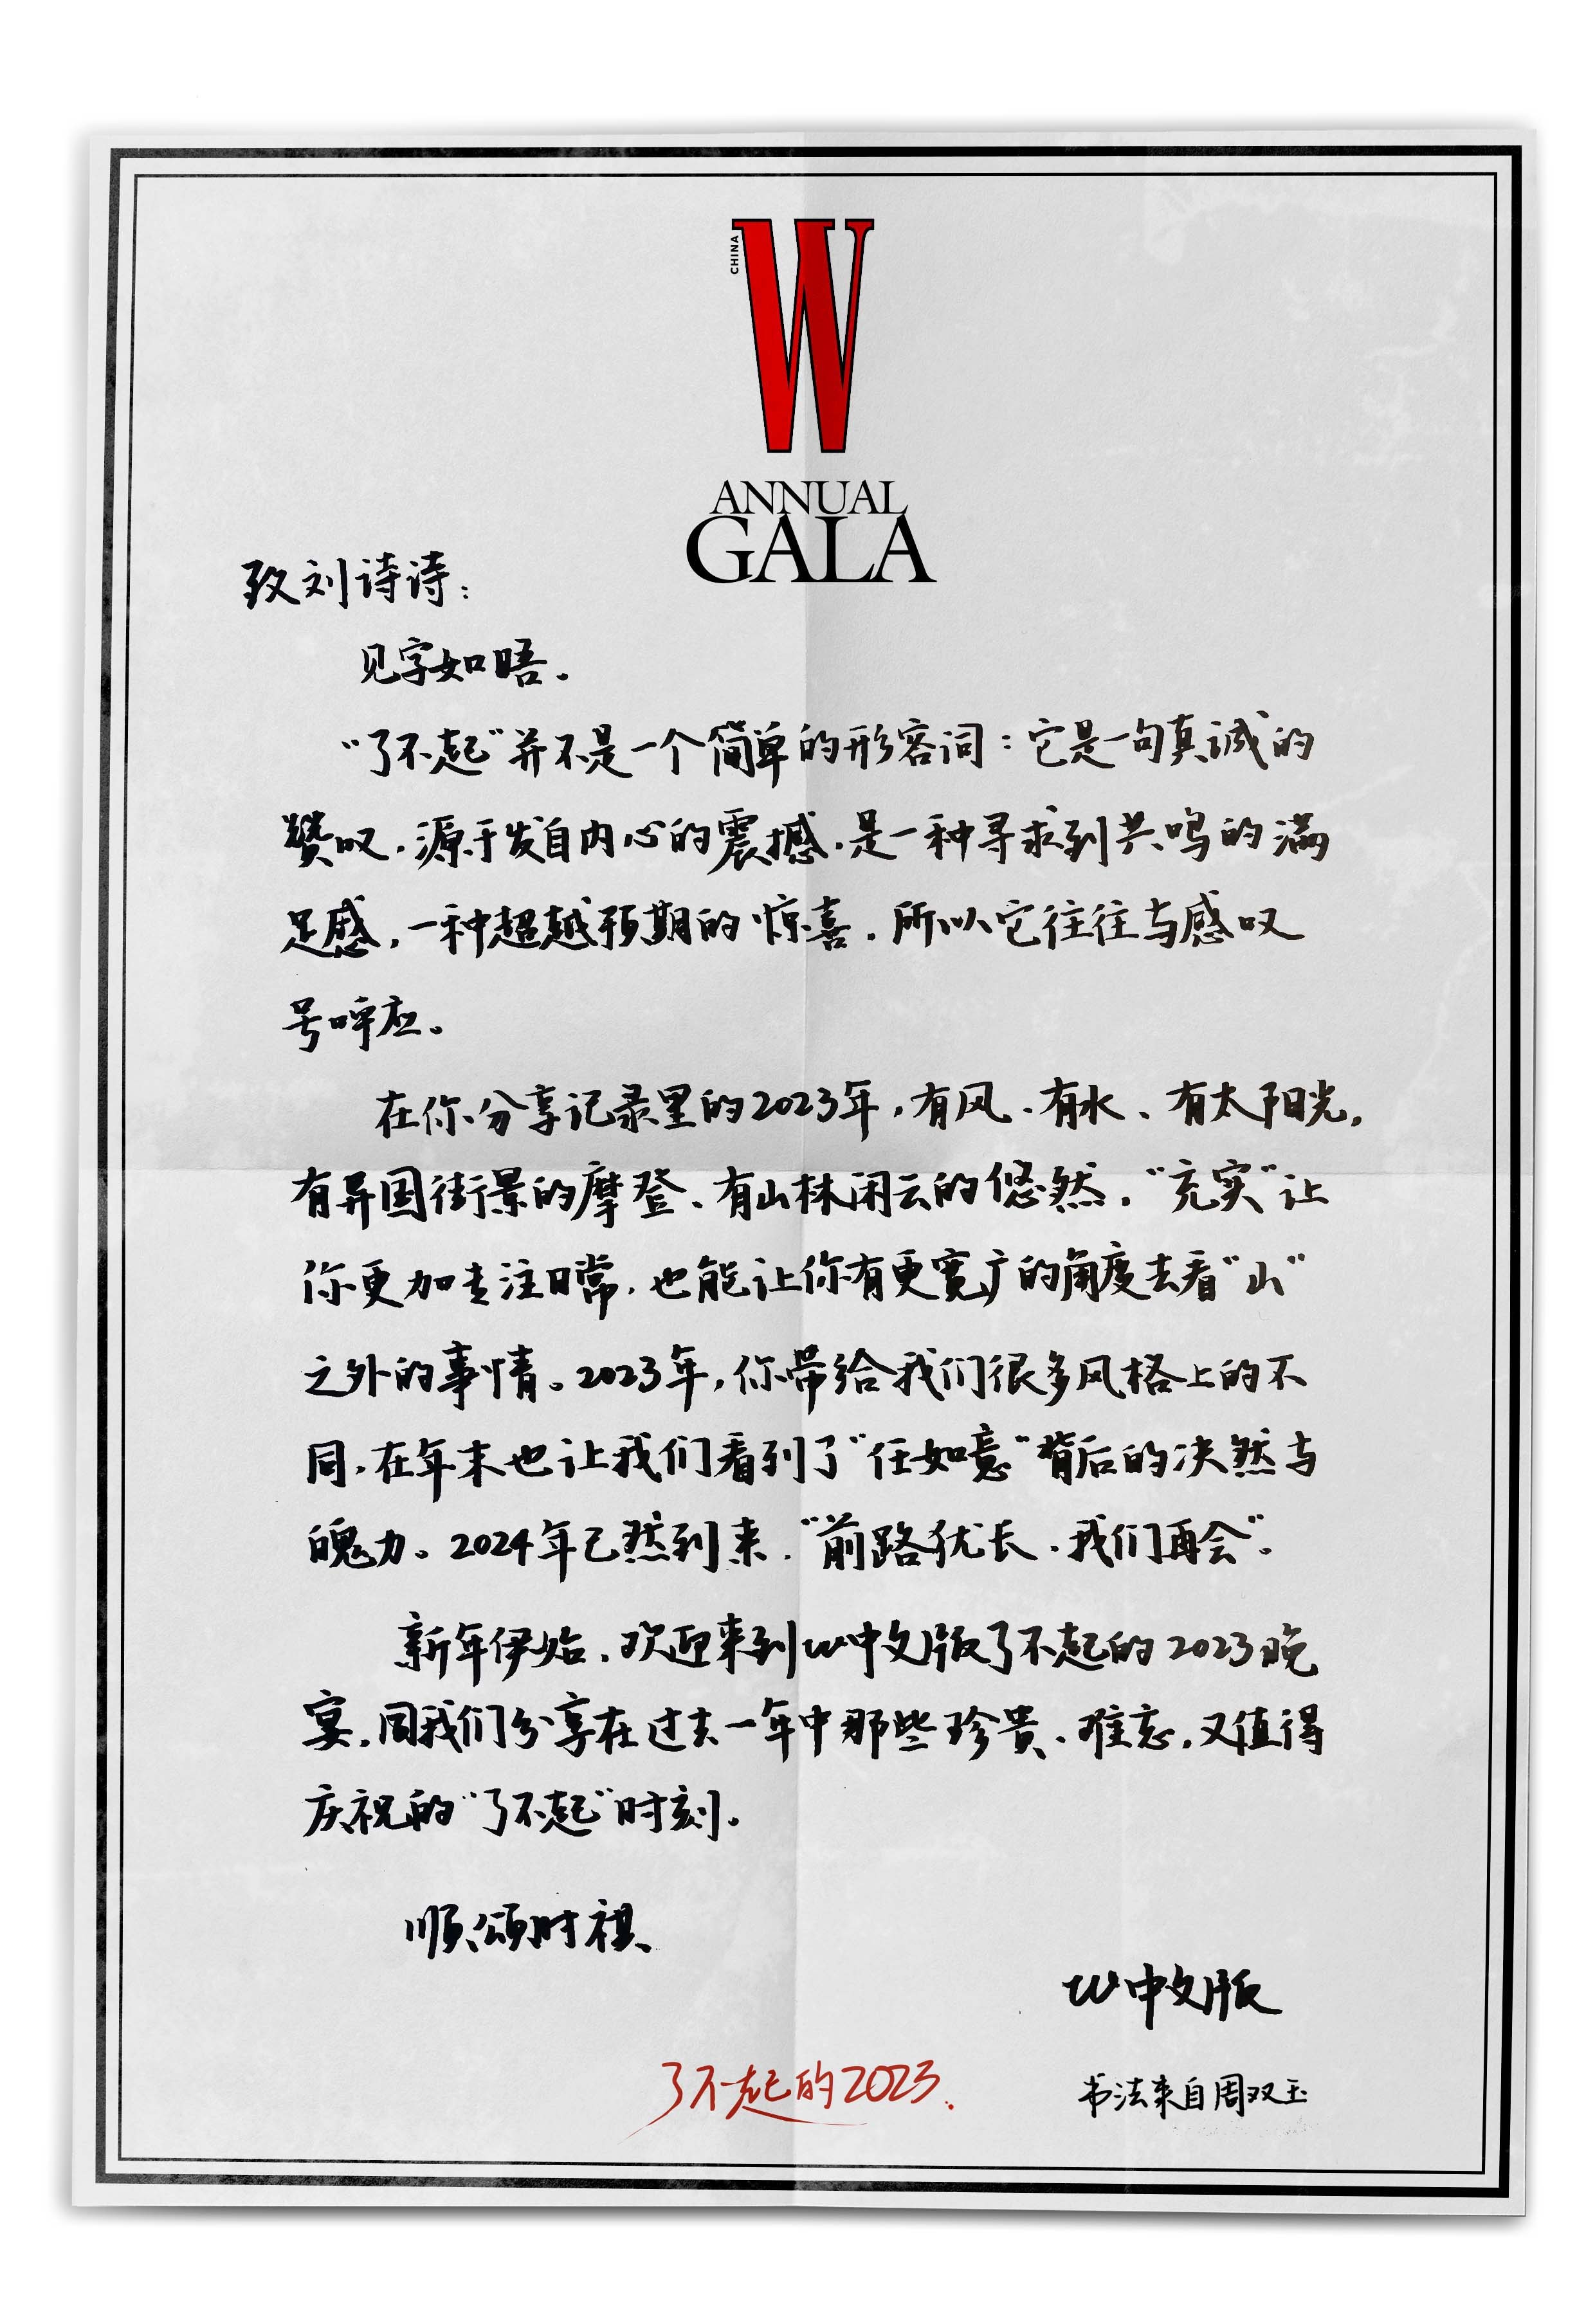 CHINA
W
ANNUAL
GALA
致刘诗诗：
见字如晤。
“了不起”并不是一个简单的形容词：它是一句真诚的
赞叹，源于发自内心的震撼，是一种寻求到共鸣的满
足感，一种超越预期的惊喜，所以它往往与感叹
号呼应。
在你分享记录里的2023年，有风、有水、有太阳光，
有异国街景的摩登、有山林闲云的悠然，“充实”让
你更加专注日常，也能让你有更宽广的角度去看“山”
之外的事情。2023年，你带给我们很多风格上的不
同，在年末也让我们看到了“任如意”背后的决然与
魄力。2024年已然到来，“前路犹长，我们再会”。
新年伊始，欢迎来到W中文版了不起的2023晚
宴，同我们分享在过去一年中那些珍贵、难忘，又值得
庆祝的“了不起”时刻。
顺颂时祺、
W中文版
了不起的2023.
书法来自周双玉